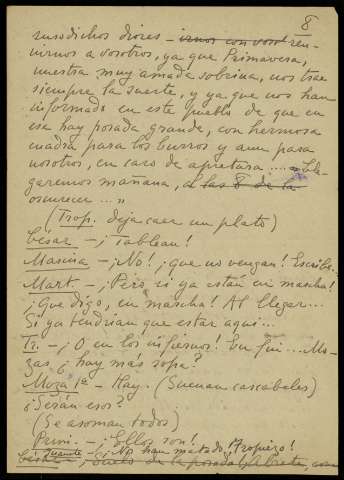 8
susodichos dioses - irnos con vosot reu-
nirnos a vosotros, ya que Primavera,
nuestra muy amada sobrina, nos trae
siempre la suerte, y ya que nos han
informado en este pueblo de que en
esa hay posada grande, con hermosa
cuadra para los burros y aun para
nosotros, en caso de apretura .... Lle-
garemos mañana, a las 8 de la
oscurecer ... »
(Trop. deja caer un plato)
César - ¡Tableau!
Marina - ¡No! ¡que no vengan! Escribe..
Mart. - ¡Pero si ya están en marcha!
¡Que digo, en marcha! Al llegar...
Si ya tendrían que estar aquí...
Tr. - ¡O en los infiernos! En fin... Mo-
zas ¿ hay más sopa?
Moza 1ª - Hay. (Suenan cascabeles)
¿Serán esos?
(Se asoman todos)
Prim. - ¡Ellos son!
¡No han matado! ¡Tropiezo!